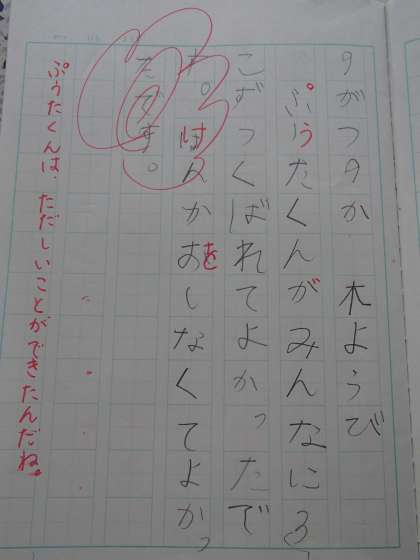 9がつ9か 木ようび
ぷうたくんがみんなにろ
こずっくばれてよかったで
す。けんかおしなくてよかっ
を
たです。
ぷうたくんは、ただしいことができたんだね。